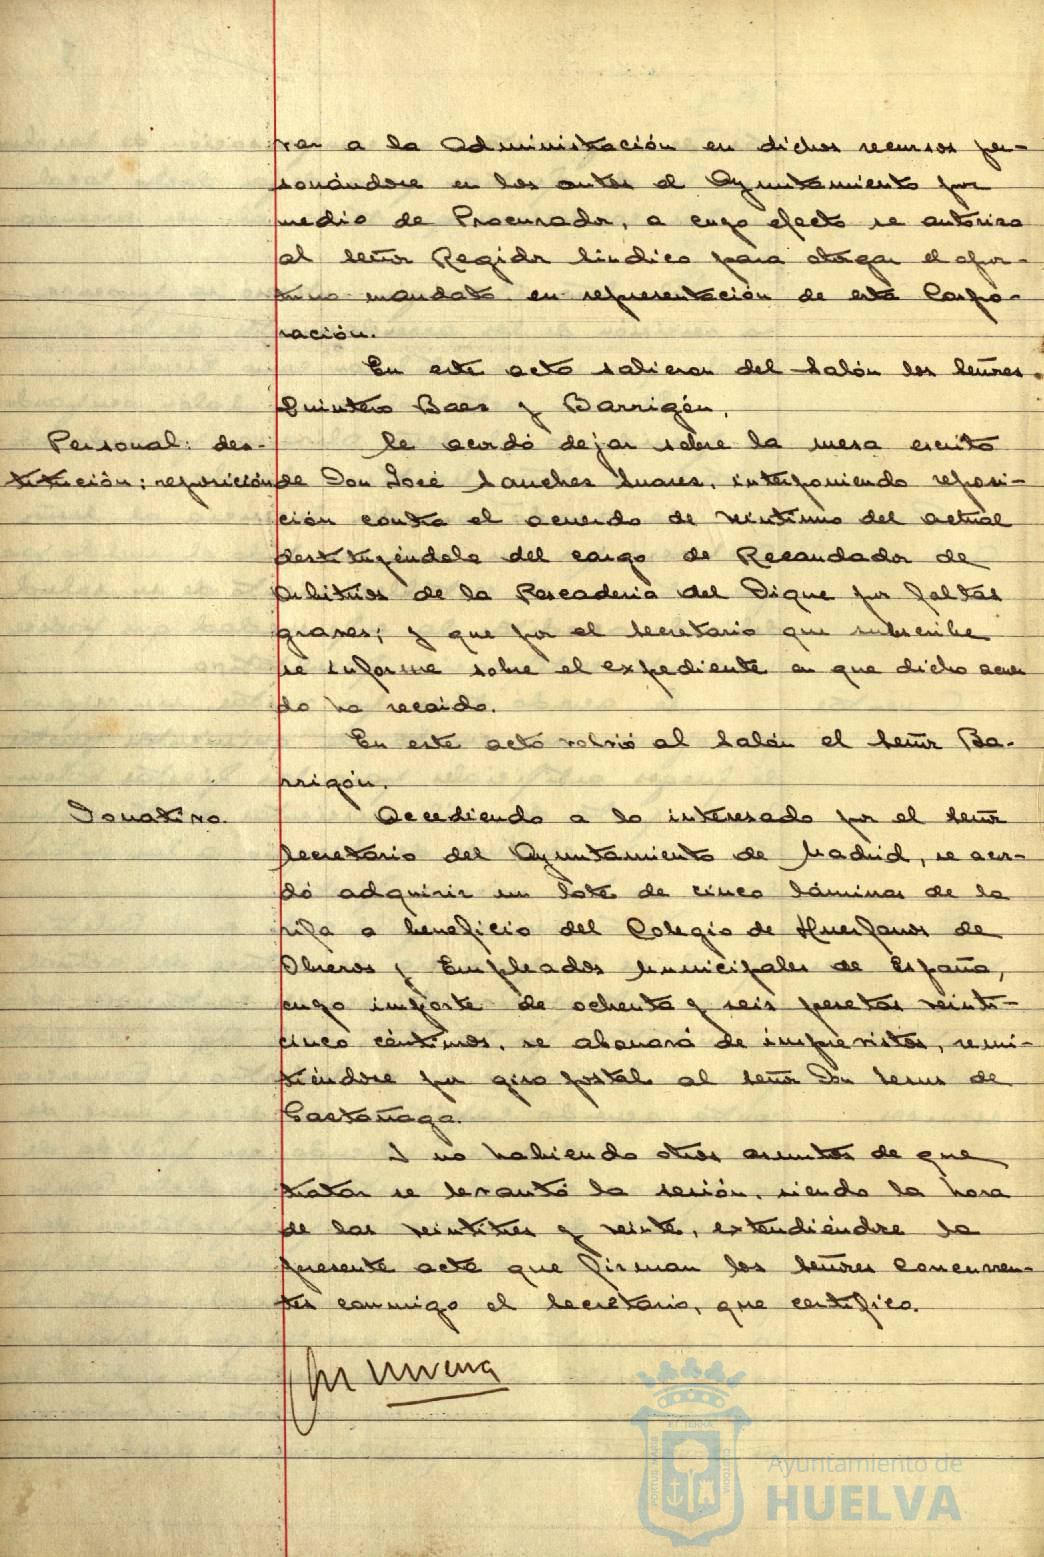 var a la Administración en dichos recursos per-
sonándose en los autos el Ayuntamiento por
medio de Procurador, a cuyo efecto se autoriza
al señor Regidor Síndico para otorgar el opor-
tuno mandato en representación de esta Corpo-
ración.
En este acto salieron del salón los señores
Quintero Baez y Barrigón.
Personal: des-
titución; reposición
Se acordó dejar sobre la mesa escrito
de Don José Sanchez Suarez, interponiendo reposi-
ción contra el acuerdo de veintiuno del actual
destituyéndole del cargo de Recaudador de
Arbitrios de la Pescaderia del Dique por faltas
graves; y que por el Secretario que subscribe
se informe sobre el expediente en que dicho acuer
do ha recaido.
En este acto volvió al salón el señor Ba-
rrigón.
Donativo.
Accediendo a lo interesado por el señor
Secretario del Ayuntamiento de Madrid, se acor-
dó adquirir un lote de cinco láminas de la
rifa a beneficio del Colegio de Huerfanos de
Obreros y Empleados Municipales de España,
cuyo importe de ochenta y seis pesetas veinti-
cinco céntimos, se abonará de imprevistos, remi-
tiéndose por giro postal al señor Don Jesus de
Castañaga.
Y no habiendo otros asuntos de que
tratar se levantó la sesión, siendo la hora
de las veintitres y veinte, extendiéndose la
presente acta que firman los señores concurren-
tes conmigo el Secretario, que certifico.
PORTUS MARIS
ET TERRAE
CUSTODIA
Ayuntamiento de
HUELVA